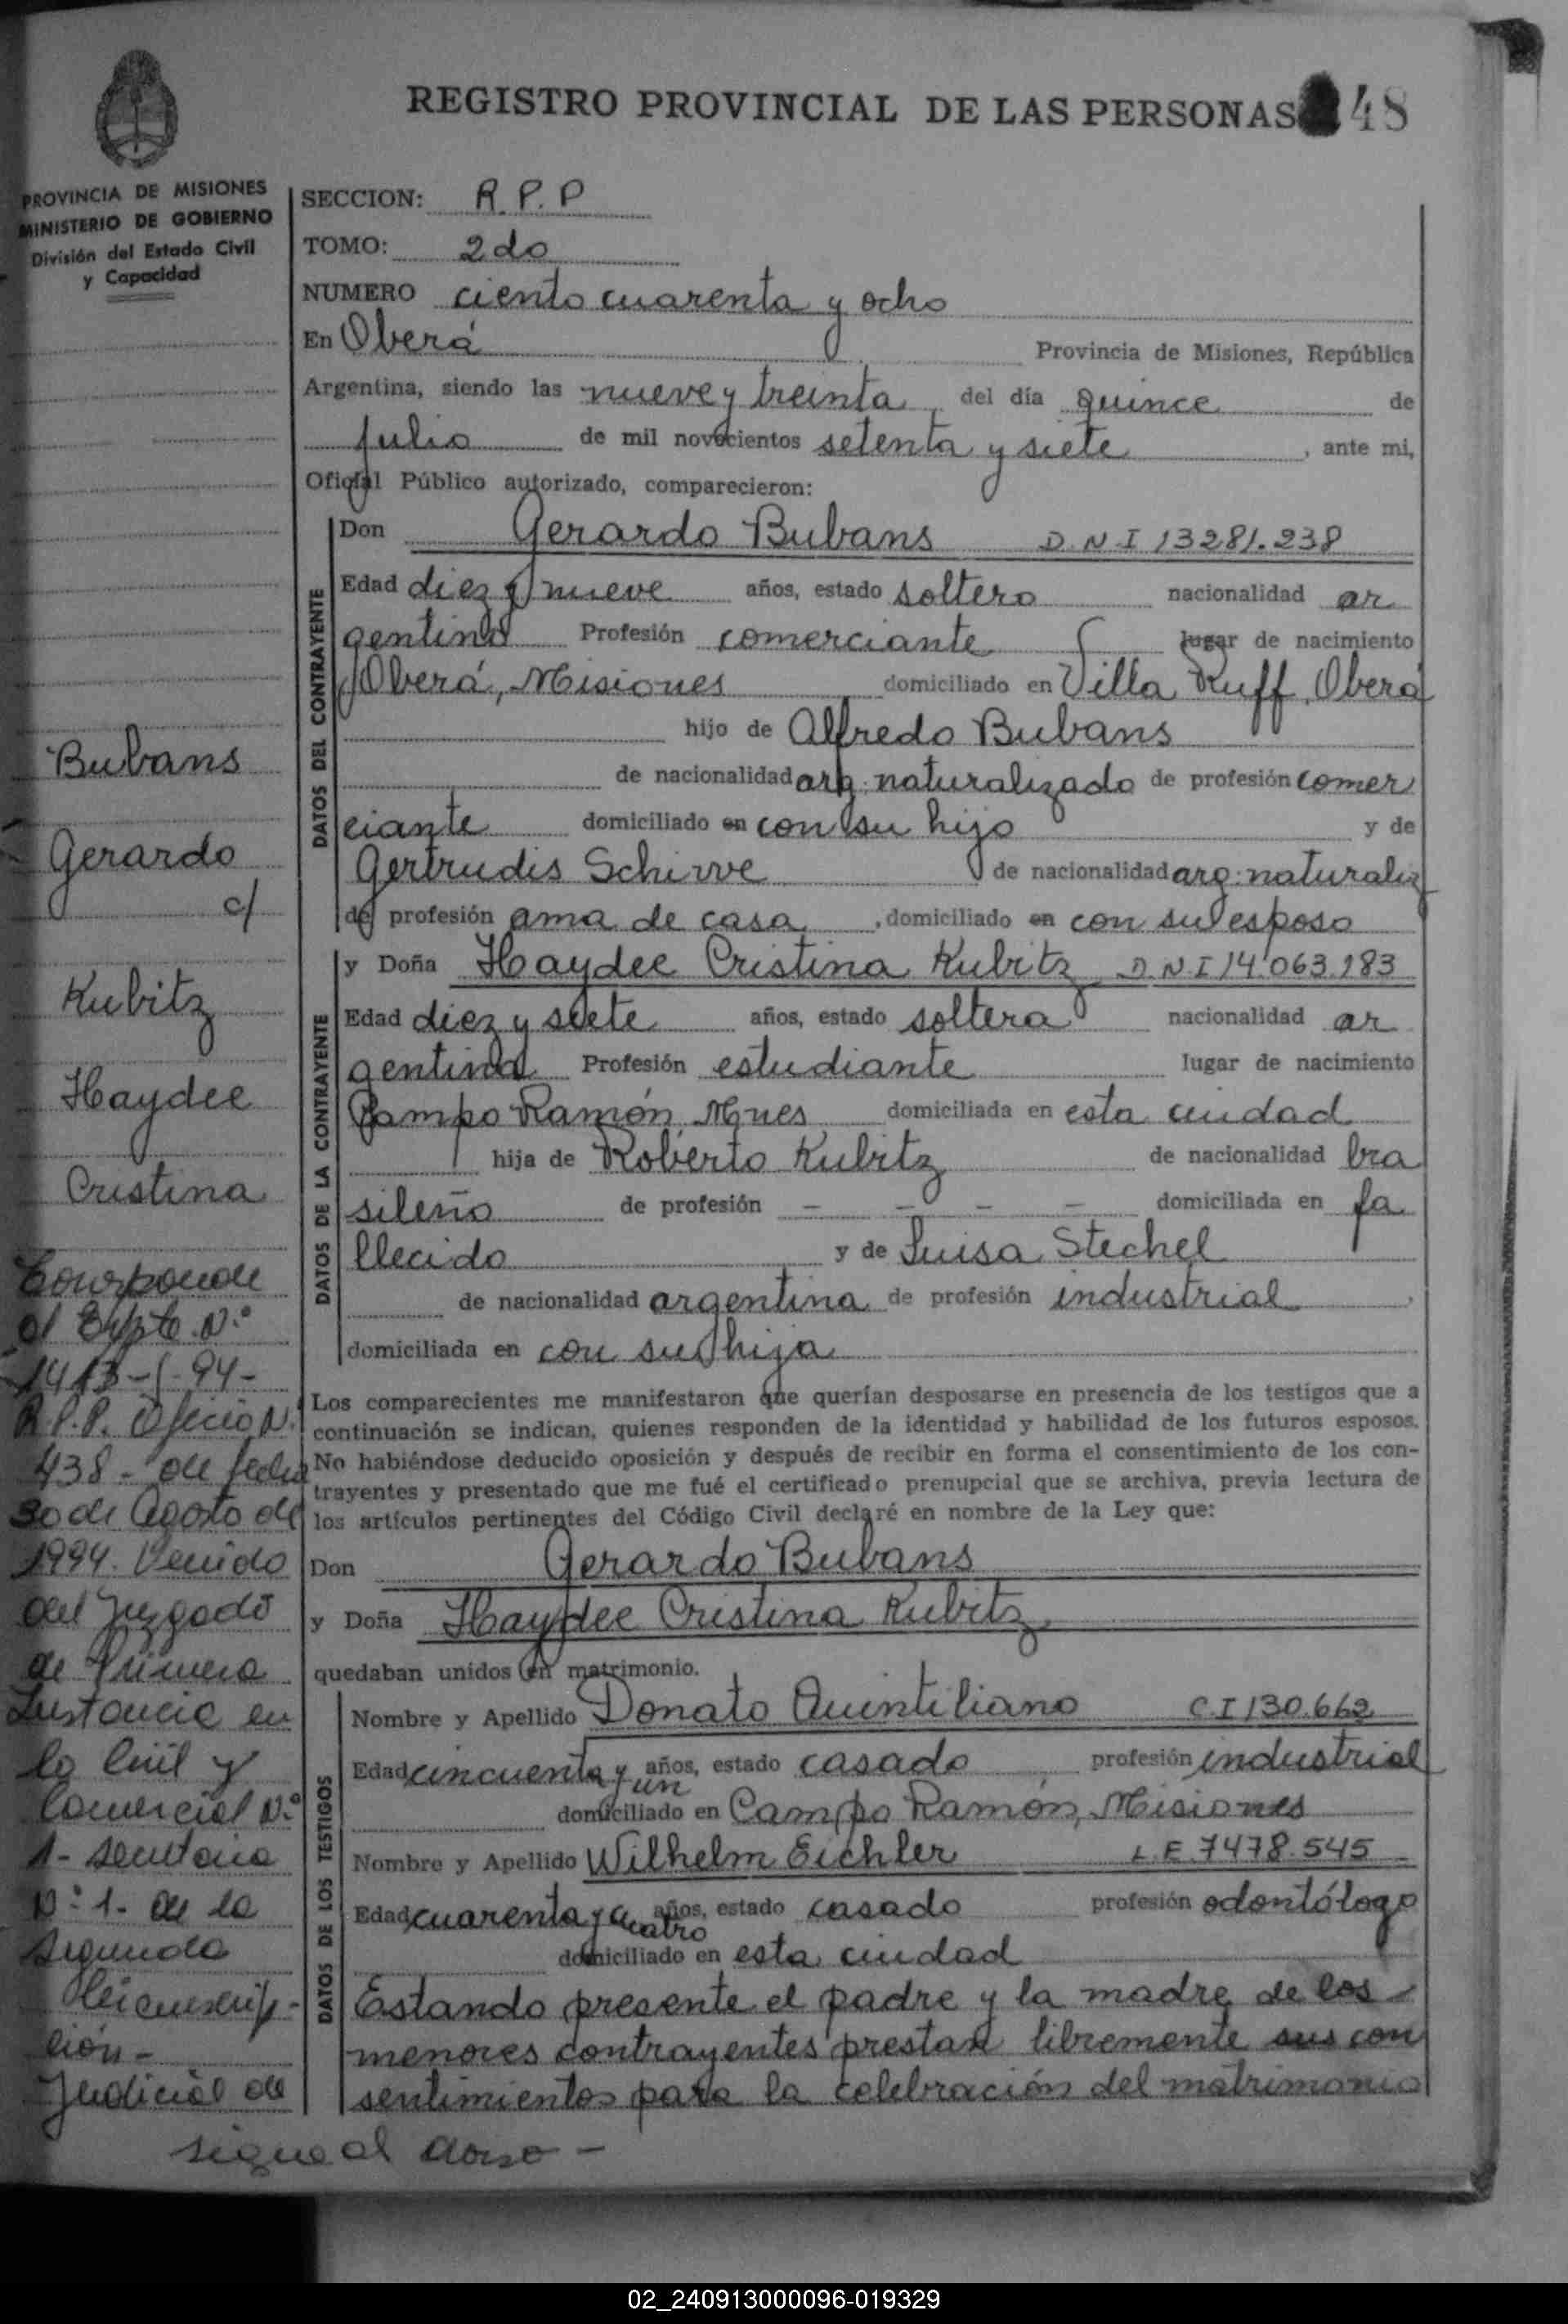 REGISTRO PROVINCIAL DE LAS PERSONAS 48
PROVINCIA DE MISIONES
MINISTERIO DE GOBIERNO
División del Estado Civil
y Capacidad
SECCION: R.P.P
TOMO: 2do
NUMERO ciento cuarenta y ocho
En Oberá Provincia de Misiones, República
Argentina, siendo las nueve y treinta, del día quince de
julio de mil novecientos setenta y siete, ante mi,
Oficial Público autorizado, comparecieron:
DATOS DEL CONTRAYENTE
Don Gerardo Bubans D.N.I 13281.238
Edad diez y nueve años, estado soltero nacionalidad ar
gentino Profesión comerciante lugar de nacimiento
Oberá, Misiones domiciliado en Villa Ruff, Oberá
hijo de Alfredo Bubans
de nacionalidad arg. naturalizado de profesión comer
ciante domiciliado en con su hijo y de
Gertrudis Schirve de nacionalidad arg. naturaliz
de profesión ama de casa, domiciliado en con su esposo
DATOS DE LA CONTRAYENTE
y Doña Haydee Cristina Kubitz D.N.I 14.063.183
Edad diez y siete años, estado soltera nacionalidad ar
gentina Profesión estudiante lugar de nacimiento
Campo Ramón, Mnes domiciliada en esta ciudad
hija de Roberto Kubitz de nacionalidad bra
sileño de profesión - - - - domiciliada en fa
llecido y de Luisa Stechel
de nacionalidad argentina de profesión industrial
domiciliada en con su hija
Los comparecientes me manifestaron que querían desposarse en presencia de los testigos que a
continuación se indican, quienes responden de la identidad y habilidad de los futuros esposos.
No habiéndose deducido oposición y después de recibir en forma el consentimiento de los con-
trayentes y presentado que me fué el certificado prenupcial que se archiva, previa lectura de
los artículos pertinentes del Código Civil declaré en nombre de la Ley que:
Don Gerardo Bubans
y Doña Haydee Cristina Kubitz
quedaban unidos en matrimonio.
DATOS DE LOS TESTIGOS
Nombre y Apellido Donato Quintiliano C.I 130.662
Edad cincuenta y un años, estado casado profesión industrial
domiciliado en Campo Ramón, Misiones
Nombre y Apellido Wilhelm Eichler L.E. 7478.545
Edad cuarenta y cuatro años, estado casado profesión odontólogo
domiciliado en esta ciudad
Estando presente el padre y la madre de los
menores contrayentes prestan libremente sus con
sentimientos para la celebración del matrimonio
Bubans
Gerardo
c/
Kubitz
Haydee
Cristina
al Expte. N.°
R.P.P. Oficio N.
438 - de fecha
30 de Agosto de
1994. Venido
del Juzgado
de Primera
Instancia en
lo Civil y
Comercial N.°
1- Secretaria
N.° 1- de la
Segunda
Circunscrip-
ción-
Judicial de
sigue al dorso -
02_240913000096-019329